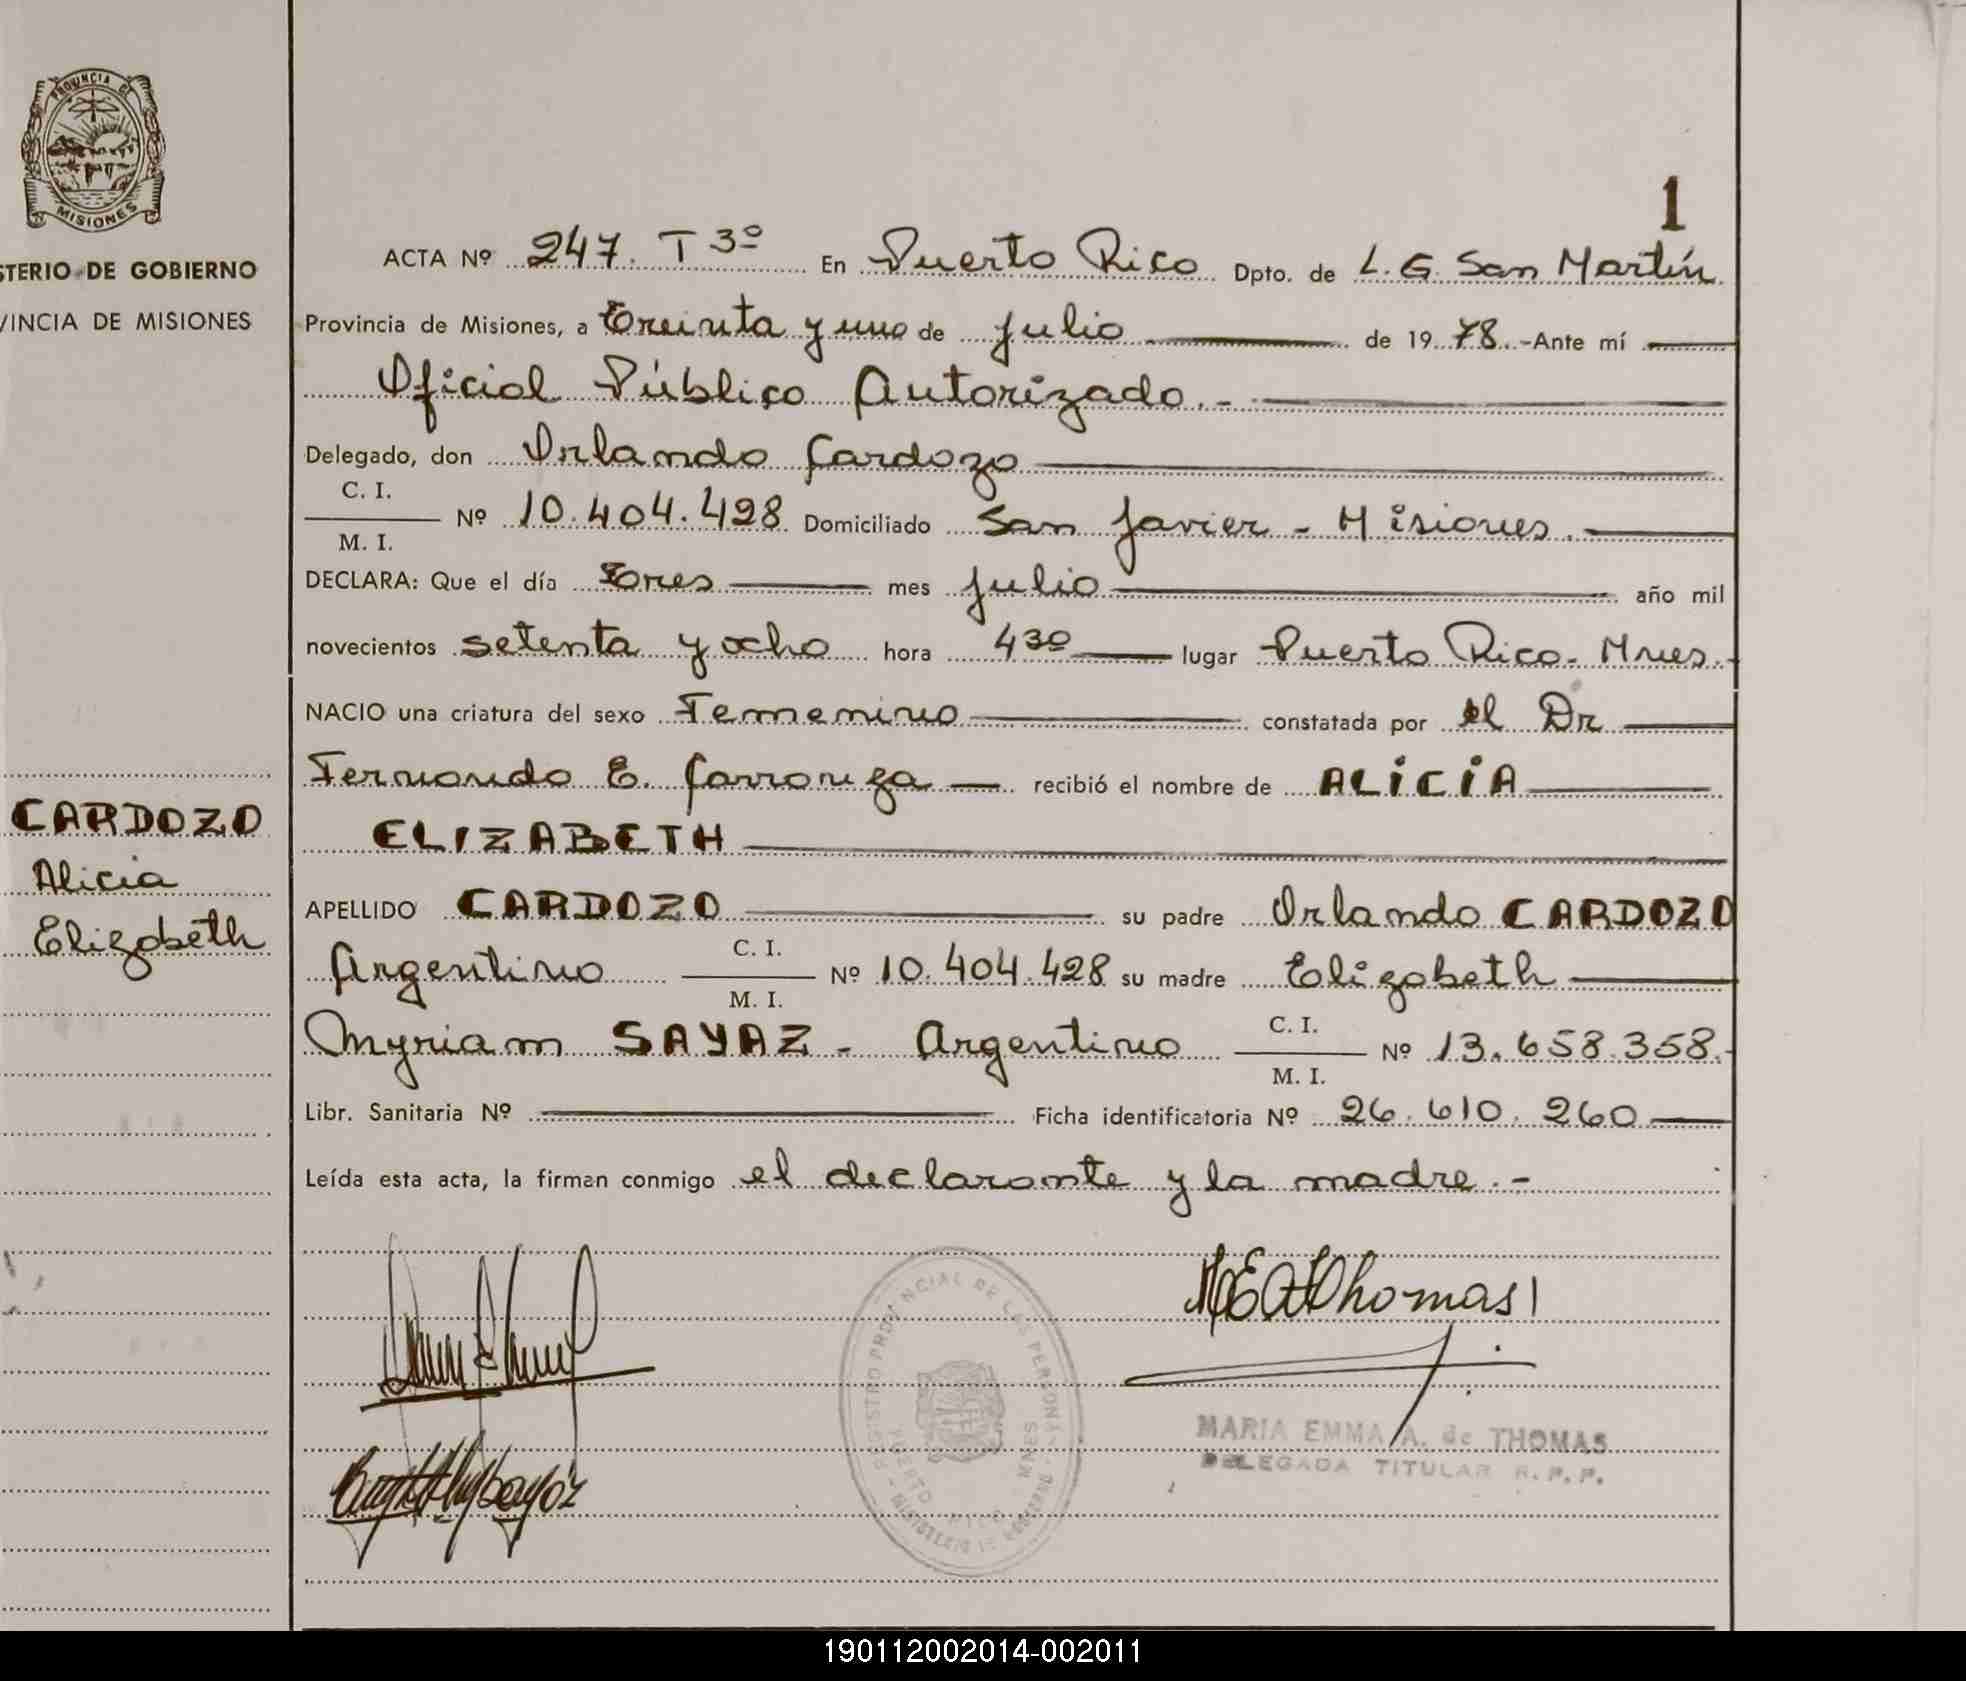 PROVINCIA DE
MISIONES
STERIO DE GOBIERNO
VINCIA DE MISIONES
CARDOZO
Alicia
Elizabeth
1
ACTA Nº 247. T 3º En Puerto Rico Dpto. de L. G. San Martín
Provincia de Misiones, a Treinta y uno de julio de 19 78. - Ante mí
Oficial Público Autorizado. -
Delegado, don Orlando Cardozo
C. I.
Nº 10.404.428 Domiciliado San Javier - Misiones.
M. I.
DECLARA: Que el día Tres mes julio año mil
novecientos setenta y ocho hora 4 30 lugar Puerto Rico - Mnes.
NACIO una criatura del sexo Femenino constatada por el Dr
Fernando E. recibió el nombre de ALICIA
ELIZABETH
APELLIDO CARDOZO su padre Orlando CARDOZO
Argentino C. I. Nº 10.404.428 su madre Elizabeth
M. I.
Myriam SAYAZ - Argentino C. I. Nº 13.658.358.
M. I.
Libr. Sanitaria Nº Ficha identificatoria Nº 26.610.260
Leída esta acta, la firman conmigo el declarante y la madre. -
MEAThomas
REGISTRO PROVINCIAL DE LAS PERSONAS
PUERTO RICO MNES
MINISTERIO DE GOBIERNO
MARIA EMMA A. de THOMAS
DELEGADA TITULAR R. P. P.
190112002014-002011